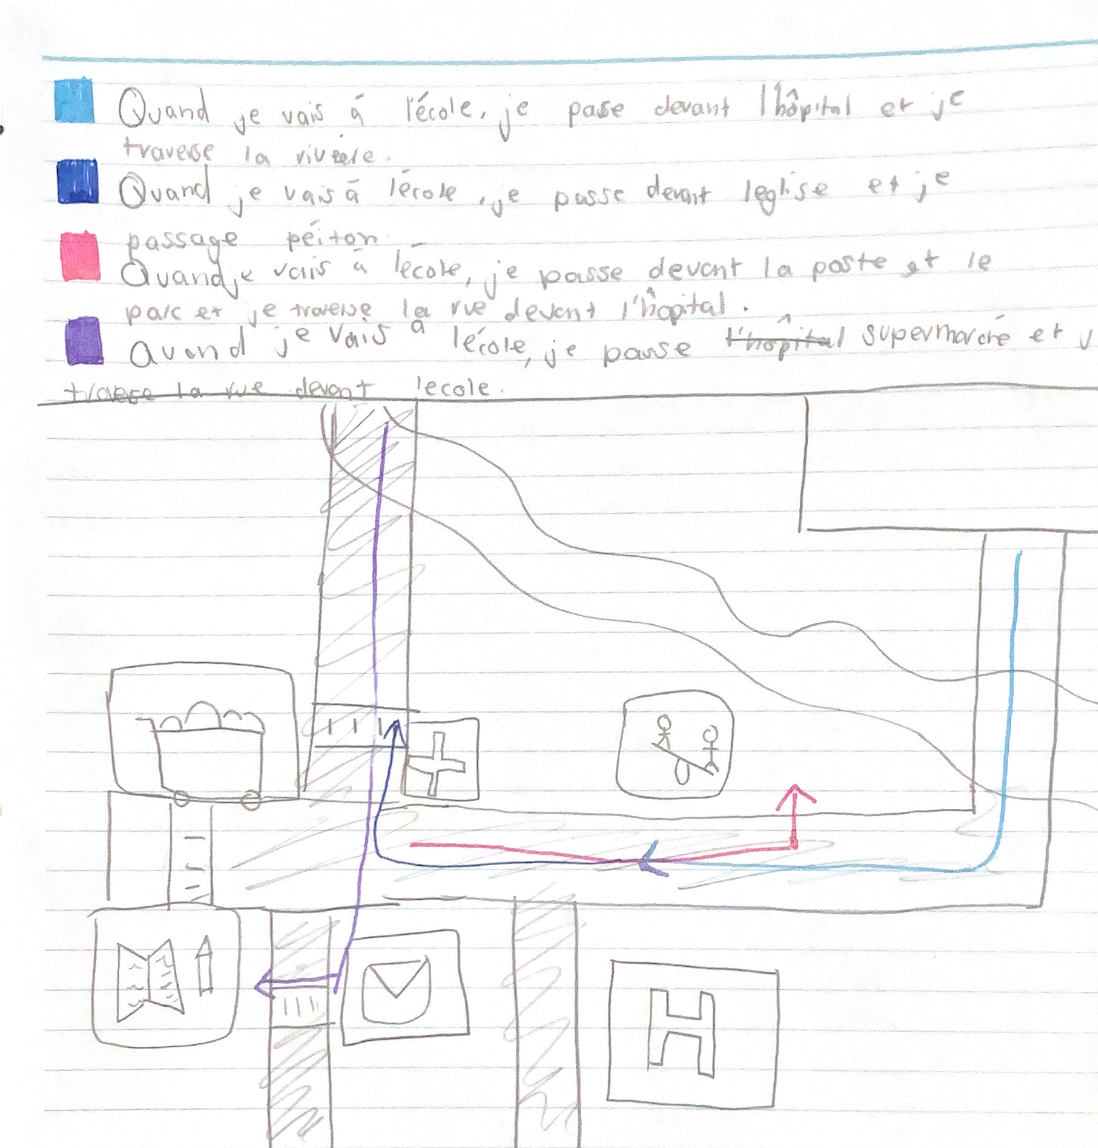 Quand je vais á l'école, je passe devant l'hôpital et je
traverse la rivière.
Quand je vais á l'école, je passe devant leglise et je
passage péiton.
Quand je vais á l'école, je passe devant la poste et le
parc et je traverse la rue devant l'hôpital.
Quand je vais á l'école, je passe l'hôpital supermarché et j
traverse la rue devant l'ecole.
H